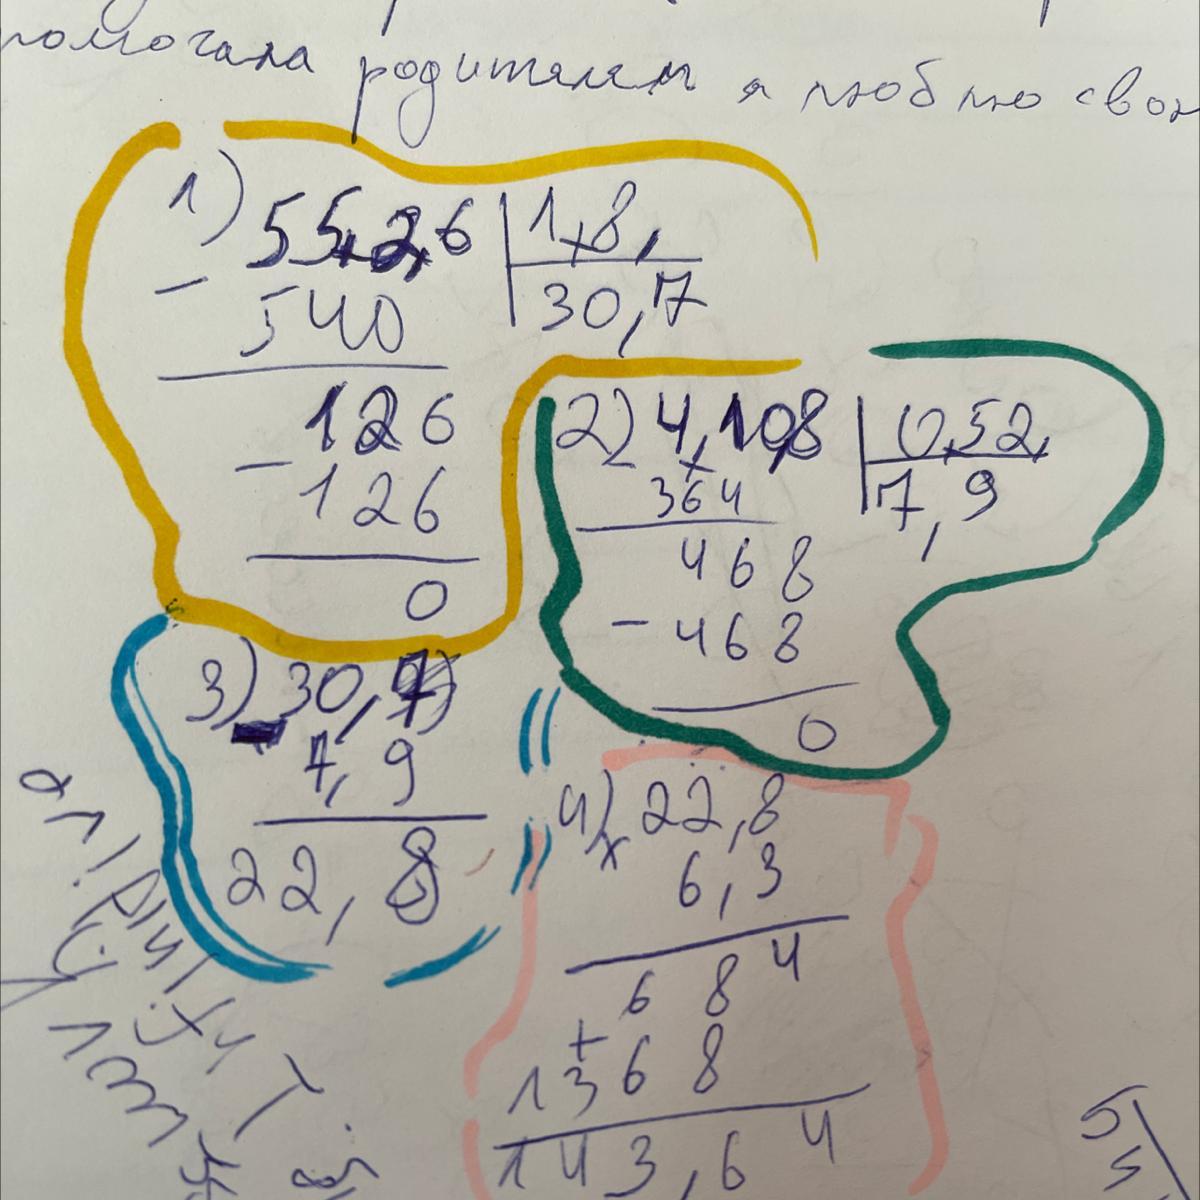 помогала родителям я люблю свою
1) 55,2,6 | 1,8,
- 540 | 30,7
126
- 126
0
2) 4,10,8 | 0,52,
364 | 7,9
468
- 468
0
3) - 30,7
7,9
22,8
4) x 22,8
6,3
684
+
1368
143,64